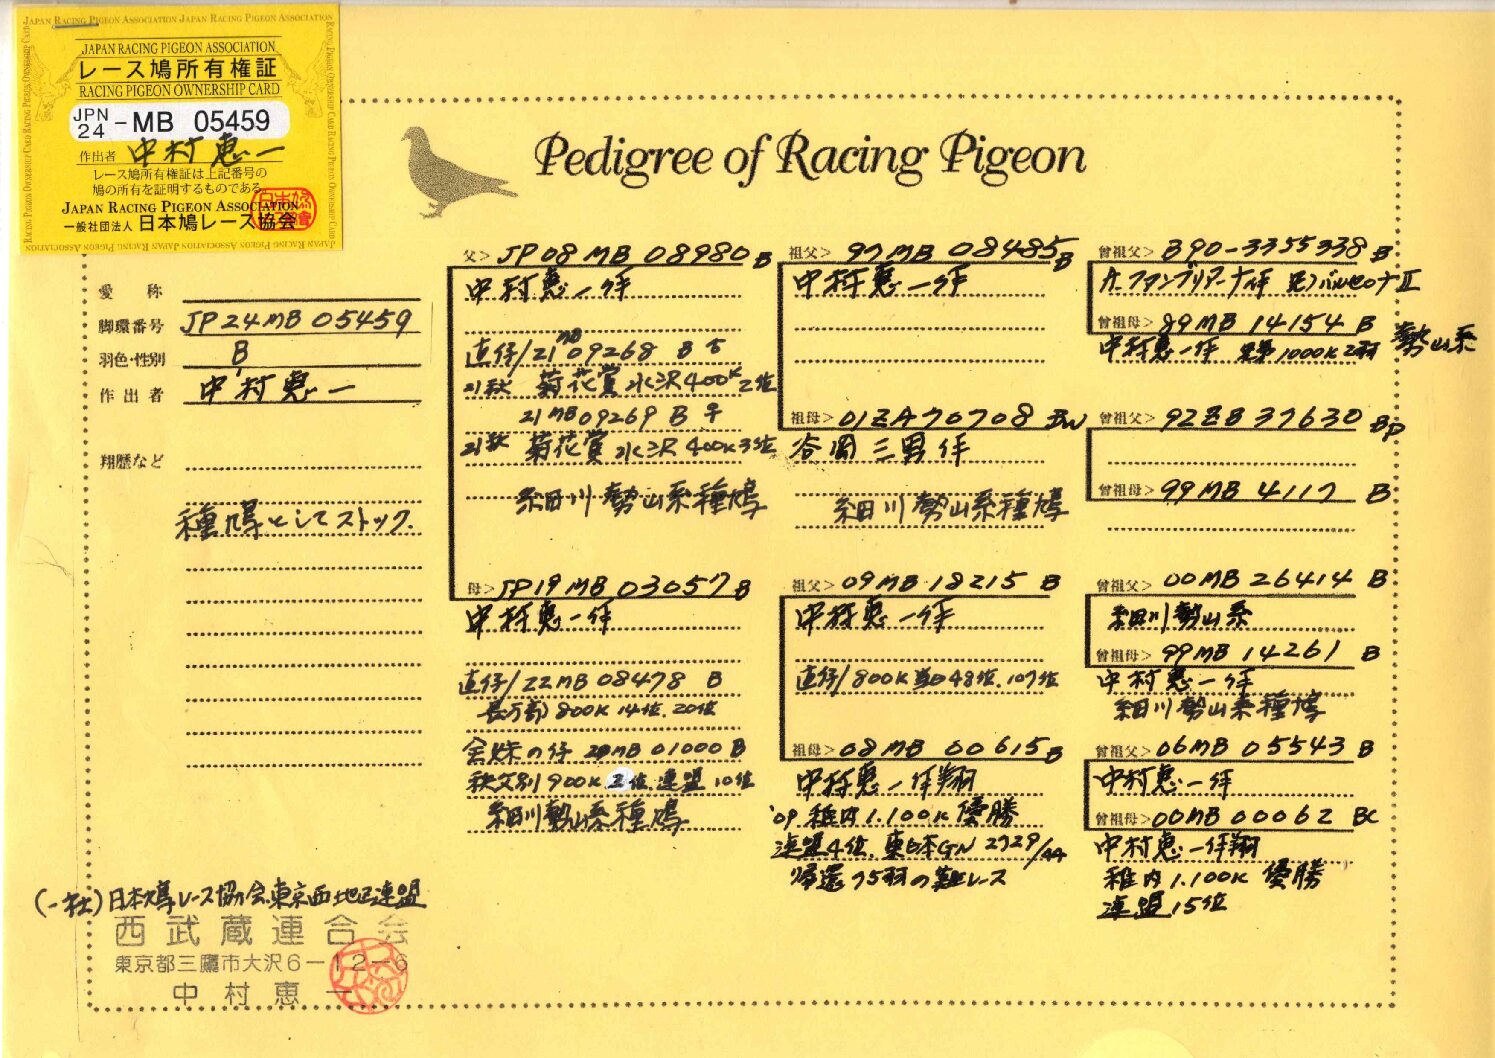 JAPAN RACING PIGEON ASSOCIATION JAPAN RACING PIGEON ASSOCIATION
JAPAN RACING PIGEON ASSOCIATION
レース鳩所有権証
RACING PIGEON OWNERSHIP CARD
JPN 24 -MB 05459
作出者 中村恵一
レース鳩所有権証は上記番号の
鳩の所有を証明するものである。
JAPAN RACING PIGEON ASSOCIATION
一般社団法人 日本鳩レース協会
Pedigree of Racing Pigeon
愛称
脚環番号 JP24MB 05459
羽色・性別 B
作出者 中村恵一
翔歴など
種鳩としてストック.
(一社)日本鳩レース協会.東京西地区連盟
西武蔵連合会
東京都三鷹市大沢6-12-6
中村恵一
父> JP 08 MB 08980 B
中村恵一作
直仔/21 MB 09268 B
21秋 菊花賞 水沢400K 2位
21MB09269 B
21秋 菊花賞 水沢400K 3位
細川勢山系種鳩
母> JP19 MB 03057 B
中村恵一作
直仔/22MB 08478 B
800K 14位. 20位
全妹の仔 MB 01000 B
秩父別900K 2位. 連盟10位
細川勢山系種鳩
祖父> 97MB 08485 B
中村恵一作
祖母> 01ZA70708 BW
谷岡三男作
細川勢山系種鳩
祖父> 09MB 18215 B
中村恵一作
直仔/800K 当日48位. 107位
祖母> 08MB 00615 B
中村恵一作翔
'09 稚内1.100K 優勝
連盟4位. 東日本GN 2729/44
帰還75羽の難レース
曾祖父> B90-3355338 B
A.ファンブリアーナ作 バルセロナII
曾祖母> 89MB 14154 B
中村恵一作 1000K 2羽 勢山系
曾祖父> 92 37630 BP
曾祖母> 99MB 4117 B
曾祖父> 00MB 26414 B
細川勢山系
曾祖母> 99MB 14261 B
中村恵一作
細川勢山系種鳩
曾祖父> 06MB 05543 B
中村恵一作
曾祖母> 00MB 00062 BC
中村恵一作翔
稚内1.100K 優勝
連盟15位